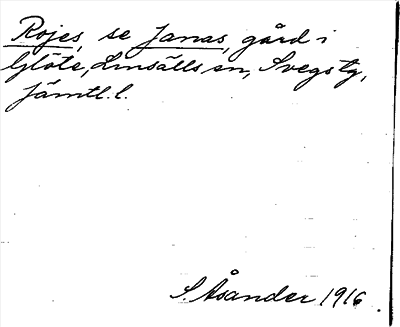 Rojes, se Janas, gård i
Glöte, Linsälls sn, Svegs tg,
Jämtl. l.
S. Åsander 1916.